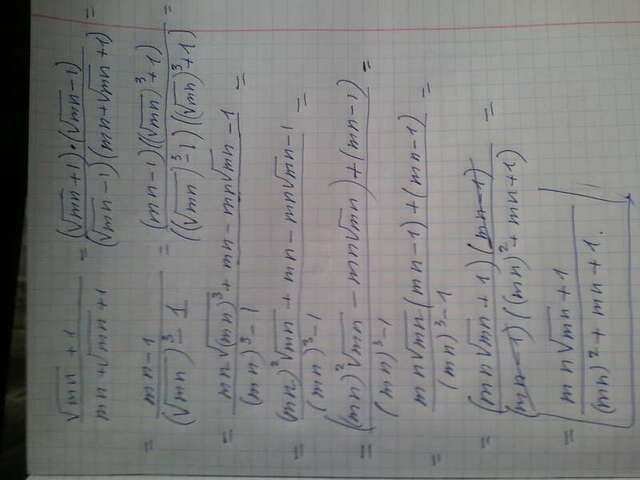 (√mn + 1)/(mn + √mn + 1) = ((√mn + 1)·(√mn − 1))/((√mn − 1)(mn + √mn + 1)) =
= (mn − 1)/((√mn)³ − 1) = ((mn − 1)((√mn)³ + 1))/(((√mn)³ − 1)((√mn)³ + 1)) =
= (mn√(mn)³ + mn − mn√mn − 1)/((mn)³ − 1) =
= ((mn)²√mn + mn − mn√mn − 1)/((mn)³ − 1) =
= (((mn)²√mn − mn√mn) + (mn − 1))/((mn)³ − 1) =
= (mn√mn (mn − 1) + (mn − 1))/((mn)³ − 1) =
= ((mn√mn + 1)(mn − 1))/((mn − 1)((mn)² + mn + 1)) =
= (mn√mn + 1)/((mn)² + mn + 1).